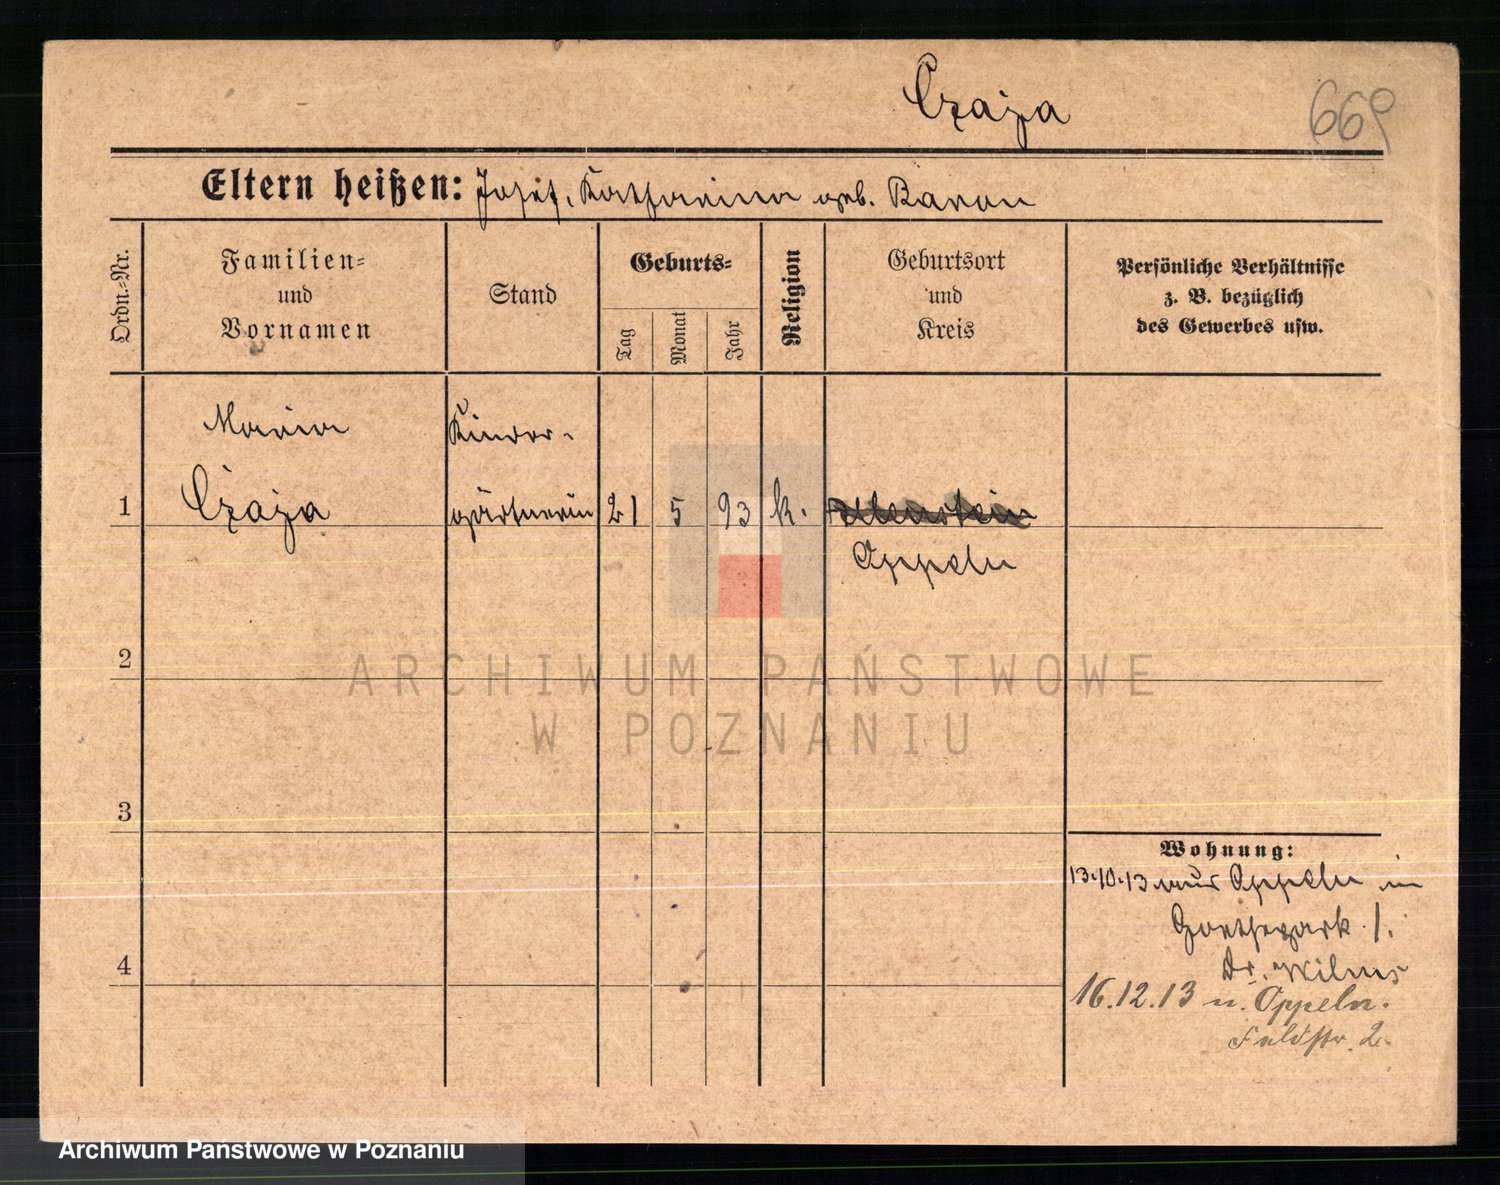 Czaja
669
Eltern heißen: Josef, Katharina geb. Baron
Ordn.-Nr.
Familien-
und
Vornamen
Stand
Geburts-
Tag
Monat
Jahr
Religion
Geburtsort
und
Kreis
Persönliche Verhältnisse
z. B. bezüglich
des Gewerbes usw.
Maria Kinder-
1 Czaja gärtnerin 21 5 93 k.
Oppeln
2
ARCHIWUM PAŃSTWOWE
W POZNANIU
3
Wohnung:
13.10.13 aus Oppeln in
Goethepark 1.
4
Dr. Wilms
16.12.13 n. Oppeln.
Feldstr. 2.
Archiwum Państwowe w Poznaniu